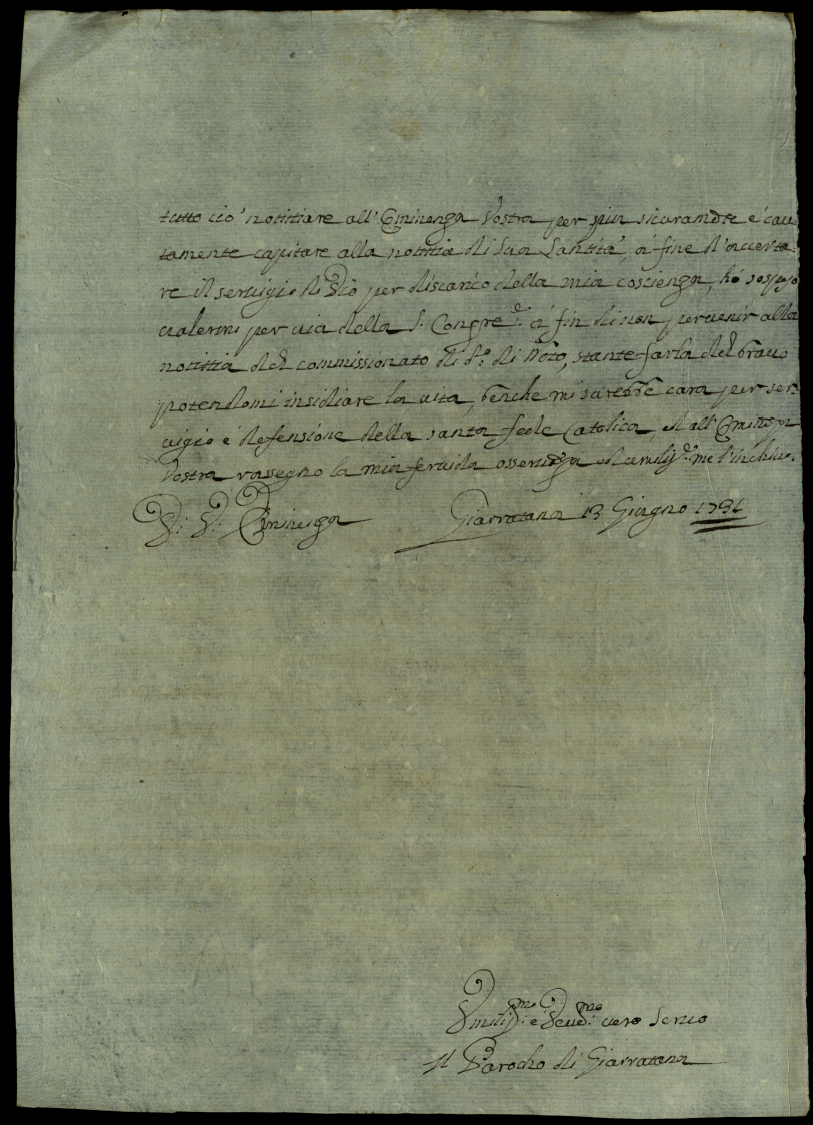 tutto ciò notitiare all'Eminenza Vostra per più sicuramẽte e cau
tamente capitare alla notitia di Sua Santità, à fine d'accerta-
re il servigio di Dio per discarico della mia coscienza, hò sospeso
valermi per via della S. Congre.e à fin di non pervenir alla
notitia del commissionato di d.o di Noto, stante farla del bravo
potendomi insidiare la vita, benche mi sarebbe cara per ser-
vigio e defensione della santa fede Catolica, ed all'Eminẽza
Vostra rassegno la mia fervida osservãza ed umilis.e me l'inchino.
D: V: Eminenza Giarratana 13 Giugno 1731
Umilis.mo e Devd.mo vero servo
Il Parocho di Giarratana